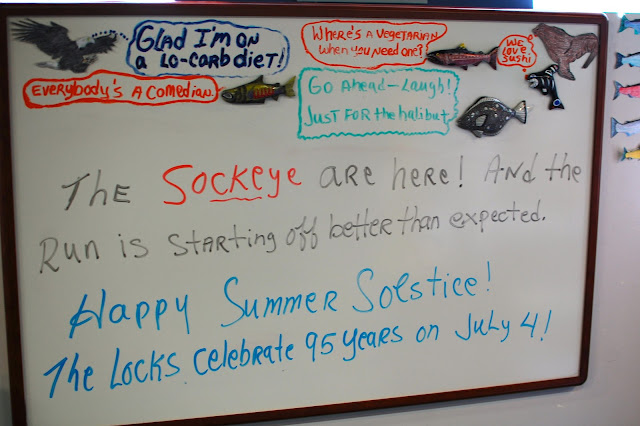 Glad I'm on
a lo-carb diet!
Where's a vegetarian
when you need one?
We
love
sushi
Everybody's a comedian.
Go ahead - laugh!
Just for the halibut
The Sockeye are here! And the
Run is starting off better than expected.
Happy Summer Solstice!
The Locks celebrate 95 years on July 4!